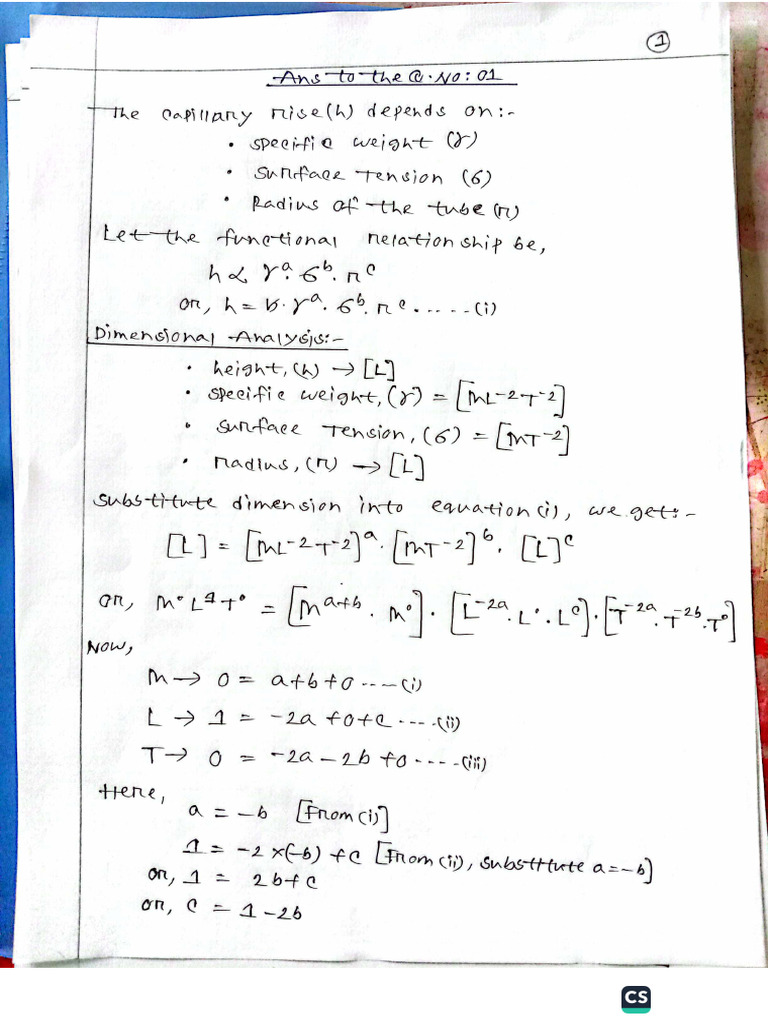 ①
Ans to the Q.No: 01
The capillary rise(h) depends on:-
• specific weight (γ)
• surface Tension (σ)
• Radius of the tube (r)
Let the functional relationship be,
h ∝ γᵃ. σᵇ. rᶜ
or, h = k. γᵃ. σᵇ. rᶜ. ..... (i)
Dimensional Analysis:-
• height, (h) → [L]
• specific weight, (γ) = [ML⁻²T⁻²]
• surface Tension, (σ) = [MT⁻²]
• radius, (r) → [L]
substitute dimension into equation (i), we get:-
[L] = [ML⁻²T⁻²]ᵃ. [MT⁻²]ᵇ. [L]ᶜ
or, M⁰ L¹ T⁰ = [Mᵃ⁺ᵇ. M⁰]. [L⁻²ᵃ. L⁰. Lᶜ]. [T⁻²ᵃ. T⁻²ᵇ. T⁰]
Now,
M → 0 = a+b+0 .... (i)
L → 1 = -2a+0+c .... (ii)
T → 0 = -2a-2b+0 ..... (iii)
Here,
a = -b [From (i)]
1 = -2×(-b)+c [From (ii), substitute a=-b]
or, 1 = 2b+c
or, c = 1-2b
CS